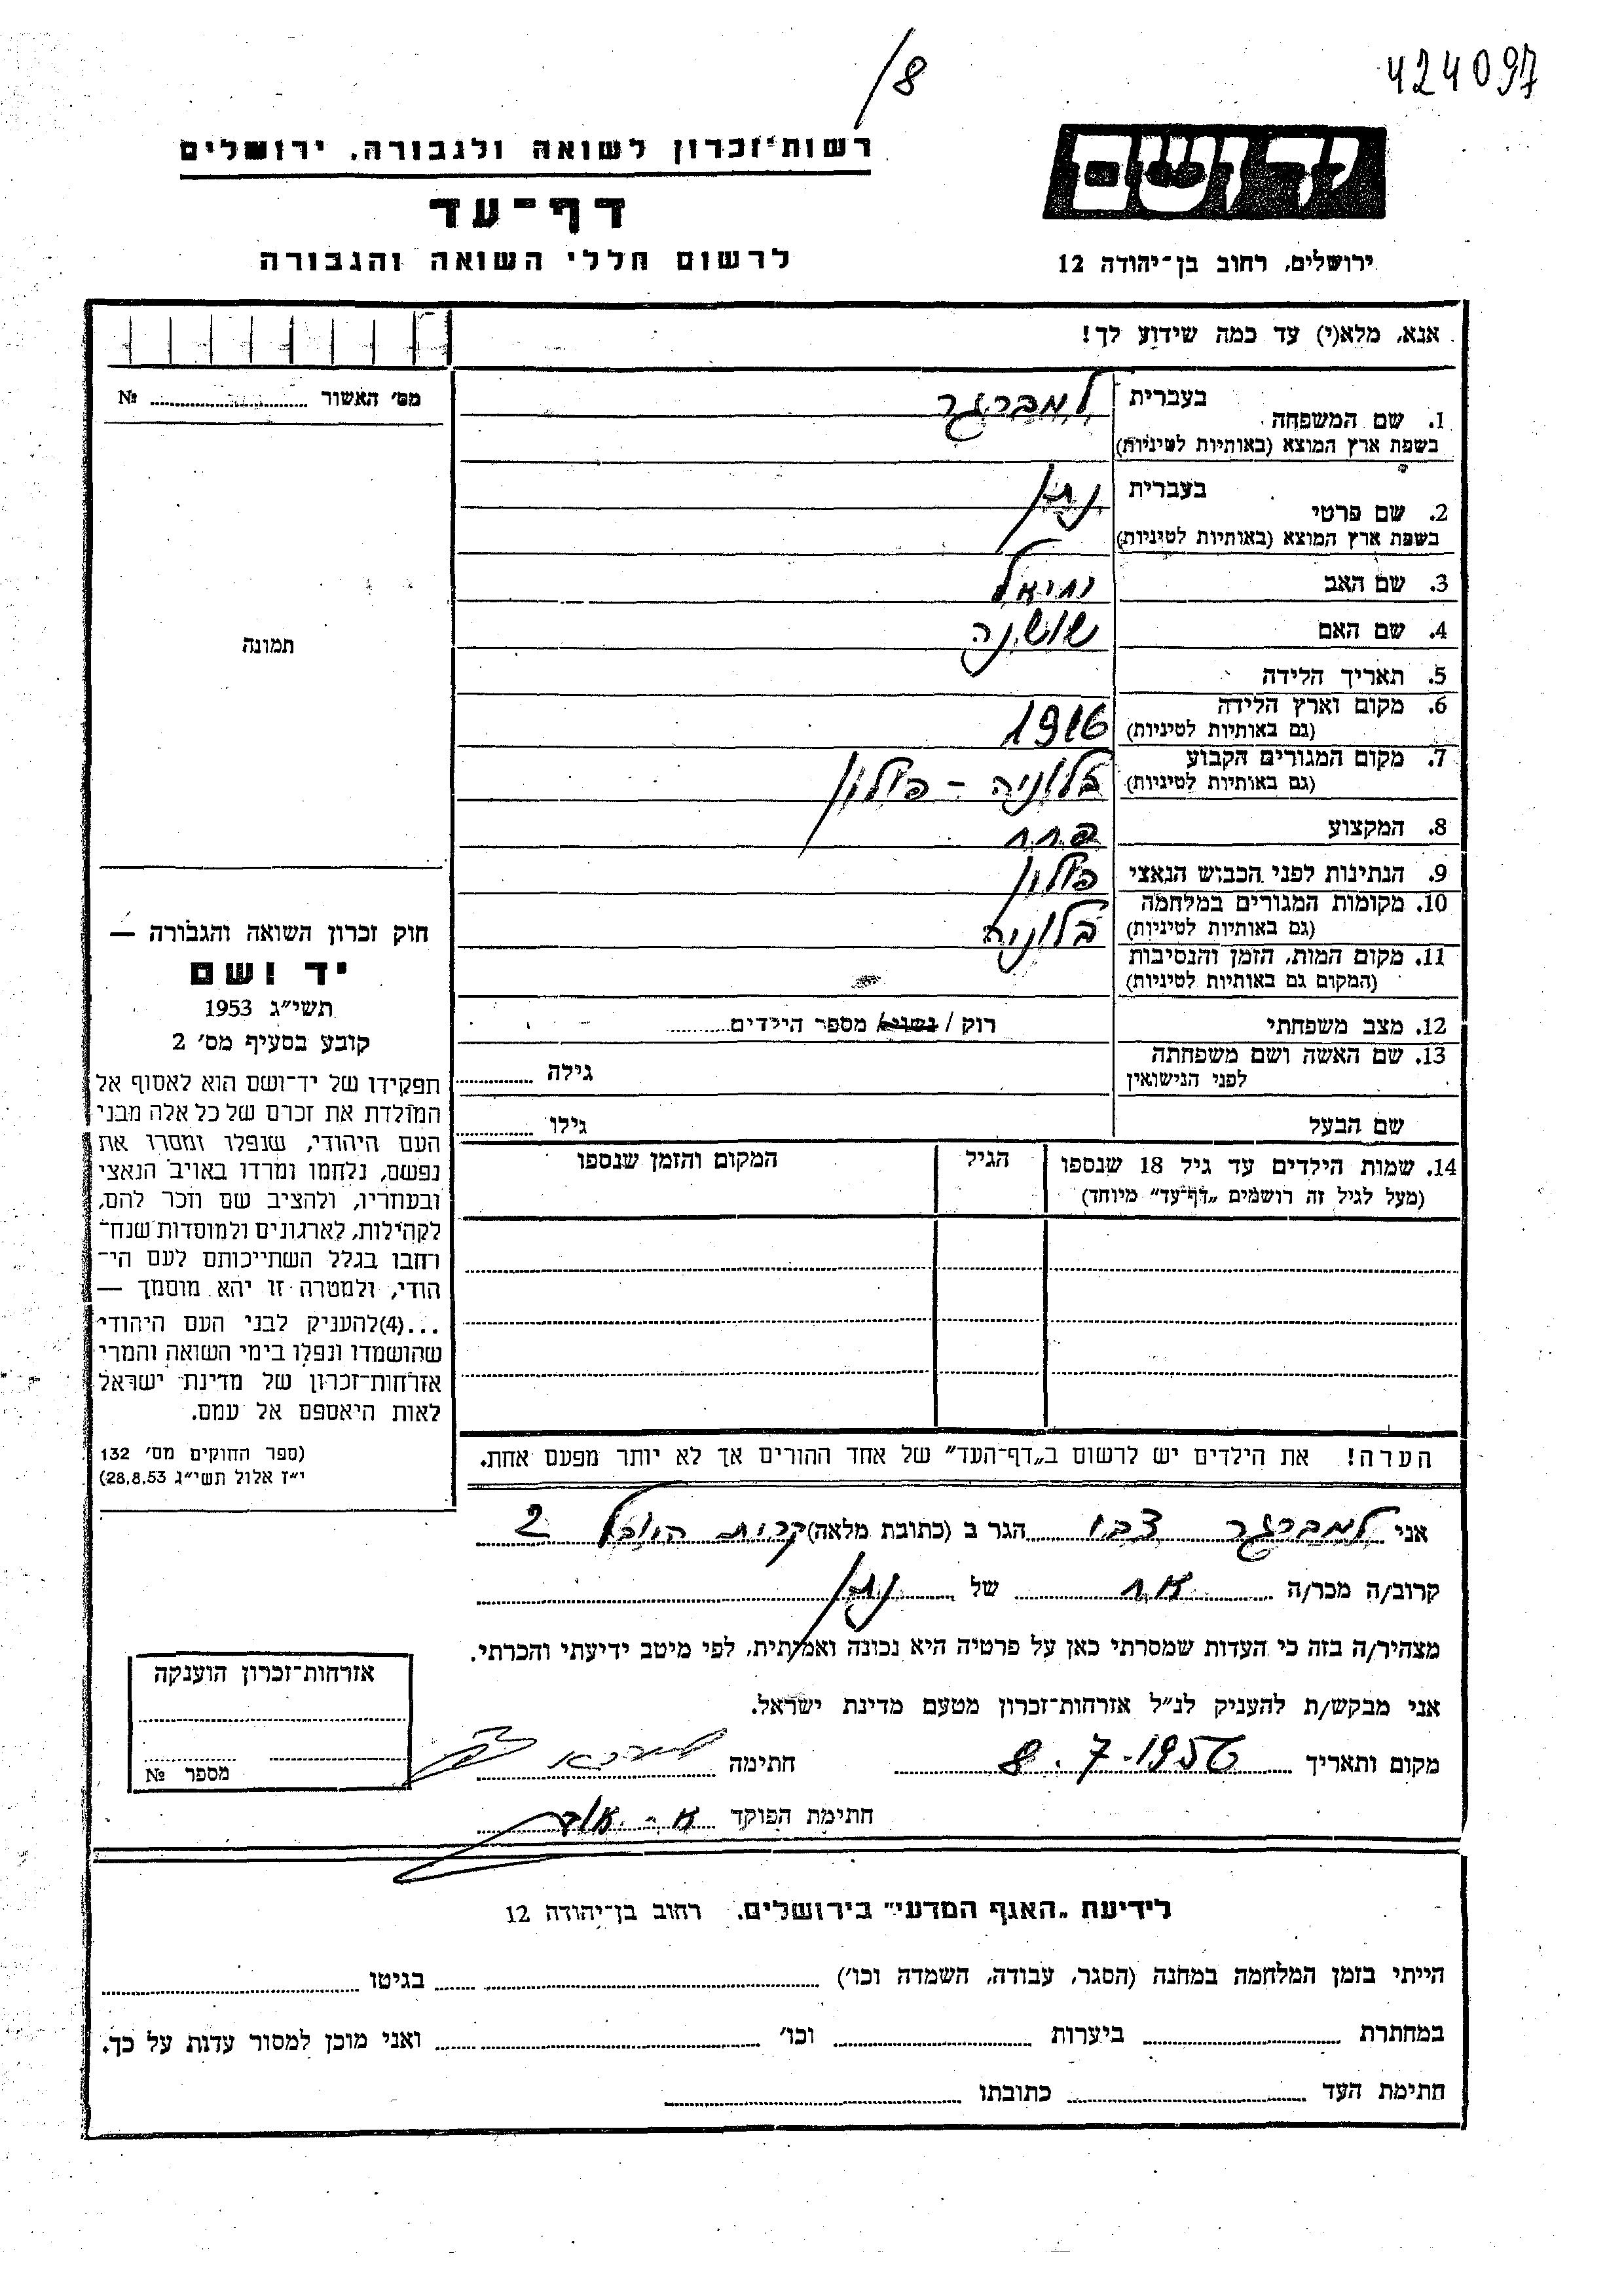 424097
/8
יד ושם
רשות־זכרון לשואה ולגבורה, ירושלים
דף־עד
ירושלים, רחוב בן־יהודה 12
לרשום חללי השואה והגבורה
אנא, מלא(י) עד כמה שידוע לך!
מס׳ האשור ........ №
1. שם המשפחה בעברית למברגר
בשפת ארץ המוצא (באותיות לטיניות)
2. שם פרטי בעברית נתן
בשפת ארץ המוצא (באותיות לטיניות)
3. שם האב יחיאל
4. שם האם שושנה
תמונה
5. תאריך הלידה
6. מקום וארץ הלידה 1916
(גם באותיות לטיניות)
7. מקום המגורים הקבוע בלוניה - פולין
(גם באותיות לטיניות)
8. המקצוע פחח
9. הנתינות לפני הכבוש הנאצי פולין
10. מקומות המגורים במלחמה בלוניה
(גם באותיות לטיניות)
11. מקום המות, הזמן והנסיבות
(המקום גם באותיות לטיניות)
12. מצב משפחתי רוק / נשוי / מספר הילדים
13. שם האשה ושם משפחתה גילה
לפני הנישואין
שם הבעל גילו
14. שמות הילדים עד גיל 18 שנספו הגיל המקום והזמן שנספו
(מעל לגיל זה רושמים „דף־עד” מיוחד)
חוק זכרון השואה והגבורה —
יד ושם
תשי״ג 1953
קובע בסעיף מס׳ 2
תפקידו של יד־ושם הוא לאסוף אל
המולדת את זכרם של כל אלה מבני
העם היהודי, שנפלו ומסרו את
נפשם, נלחמו ומרדו באויב הנאצי
ובעוזריו, ולהציב שם וזכר להם,
לקהילות, לארגונים ולמוסדות שנח־
רחבו בגלל השתייכותם לעם הי־
הודי, ולמטרה זו יהא מוסמך —
...(4)להעניק לבני העם היהודי
שהושמדו ונפלו בימי השואה והמרי
אזרחות־זכרון של מדינת ישראל
לאות היאספם אל עמם.
(ספר החוקים מס׳ 132
י״ז אלול תשי״ג 28.8.53)
הערה! את הילדים יש לרשום ב„דף־העד” של אחד ההורים אך לא יותר מפעם אחת.
אני למברגר צבי הגר ב (כתובת מלאה) קרית היובל 2
קרוב/ה מכר/ה אח של נתן
מצהיר/ה בזה כי העדות שמסרתי כאן על פרטיה היא נכונה ואמיתית, לפי מיטב ידיעתי והכרתי.
אני מבקש/ת להעניק לנ״ל אזרחות־זכרון מטעם מדינת ישראל.
מקום ותאריך 8.7.1956 חתימה
חתימת הפוקד
אזרחות־זכרון הוענקה
מספר №
לידיעת „האגף המדעי” בירושלים, רחוב בן־יהודה 12
הייתי בזמן המלחמה במחנה (הסגר, עבודה, השמדה וכו׳) בגיטו
במחתרת ביערות וכו׳ ואני מוכן למסור עדות על כך.
חתימת העד כתובתו